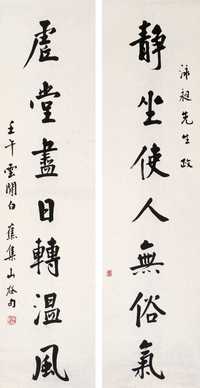 先生政
靜坐使人無俗氣
虛堂盡日轉溫風
壬午雲間白蕉集山谷句